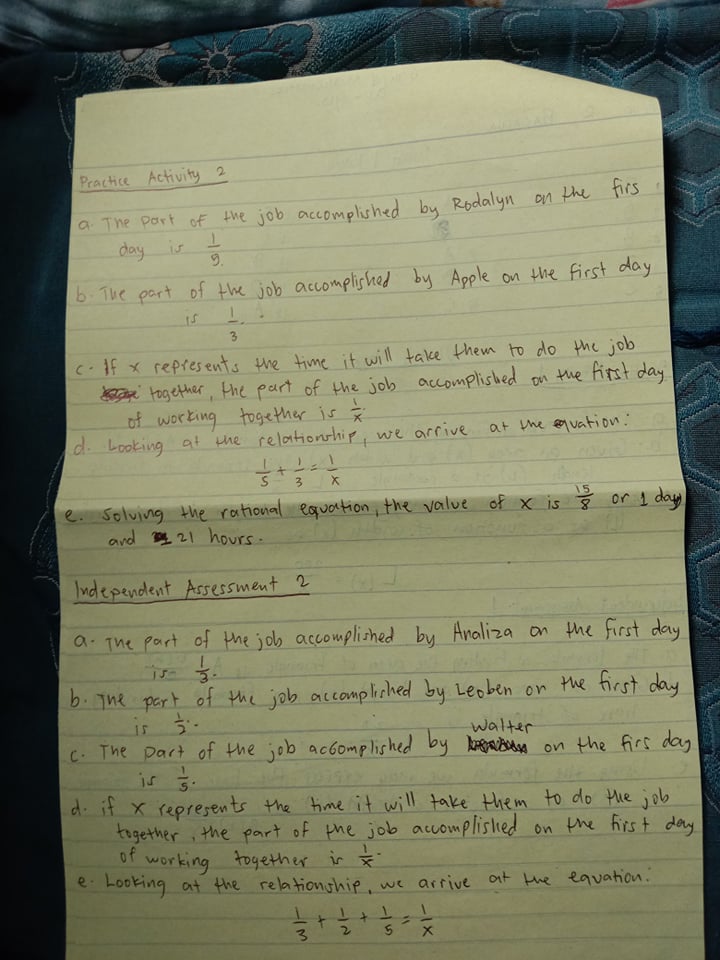 Practice Activity 2
a. The part of the job accomplished by Rodalyn on the firs
day is 1/9.
b. The part of the job accomplished by Apple on the first day
is 1/3.
c. If x represents the time it will take them to do the job
together, the part of the job accomplished on the first day
of working together is 1/x.
d. Looking at the relationship, we arrive at the equation:
1/5 + 1/3 = 1/x
e. Solving the rational equation, the value of x is 15/8 or 1 day
and 21 hours.
Independent Assessment 2
a. The part of the job accomplished by Analiza on the first day
is 1/3.
b. The part of the job accomplished by Leoben on the first day
is 1/2.
c. The part of the job accomplished by Walter on the firs day
is 1/5.
d. if x represents the time it will take them to do the job
together, the part of the job accomplished on the first day
of working together is 1/x.
e. Looking at the relationship, we arrive at the equation:
1/3 + 1/2 + 1/5 = 1/x